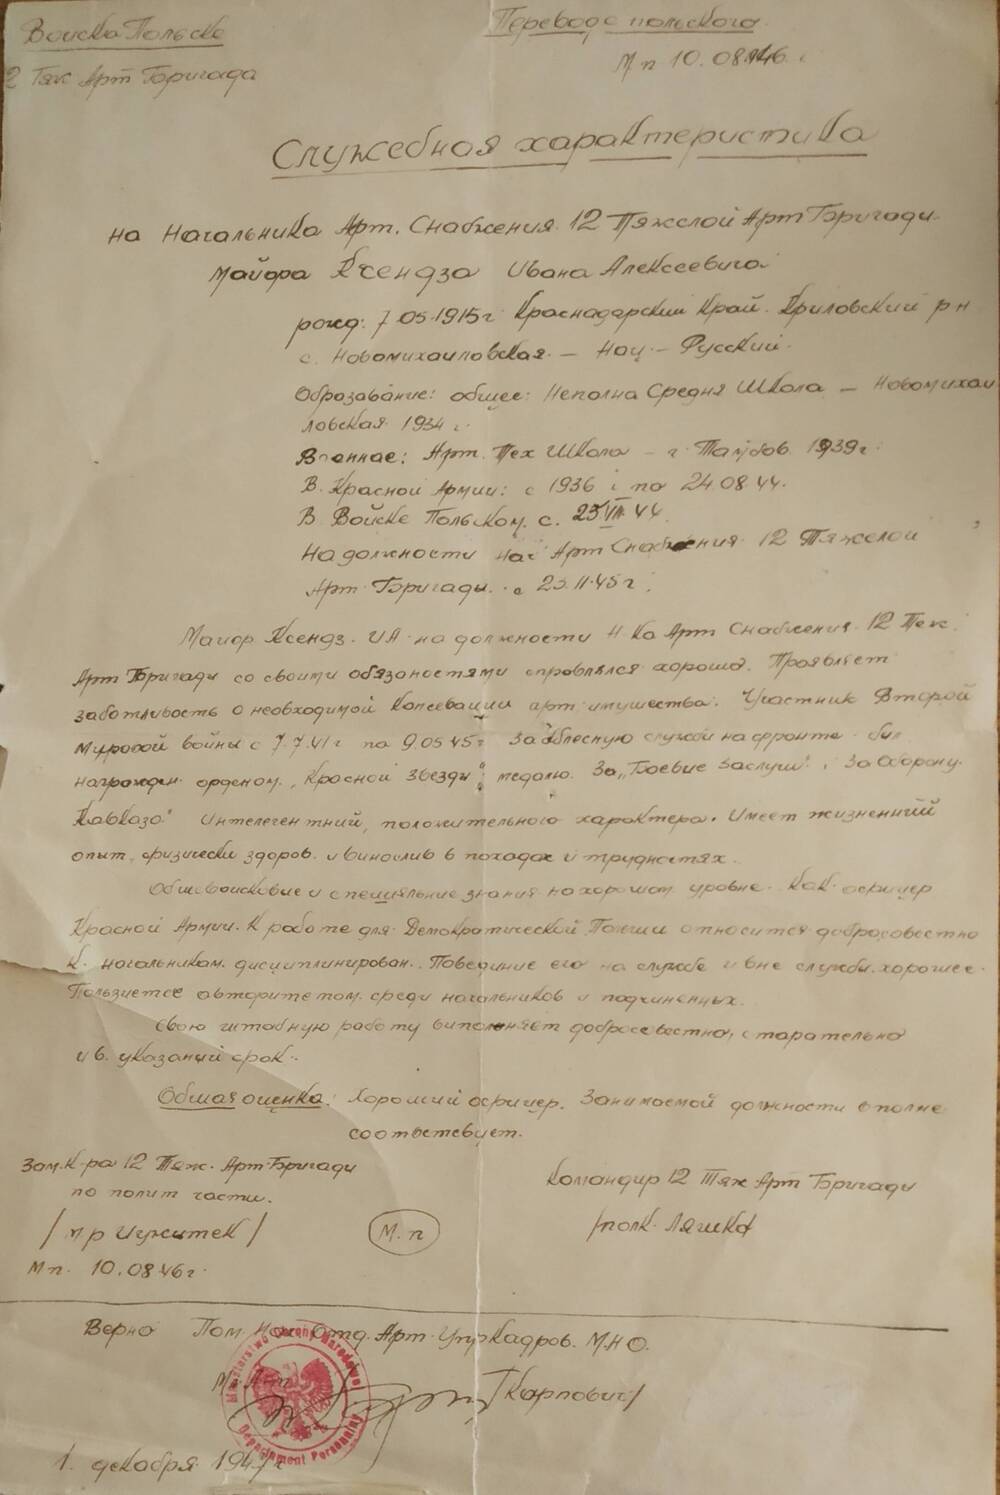 Войска Польске
Перевод с польского
2 Тяж Арт Бригада
М п 10.08.46.
Служебная характеристика
на Начальника Арт. Снабжения 12 Тяжелой Арт Бригади
майора Ксендза Ивана Алексеевича
рожд. 7.05.1915г Краснадарский Край. Криловский р н
с. Новомихаиловская. – Нац – Русский.
Образавание: общее: Неполна Средня Школа – Новомихаи
ловская 1934 г.
Военнае: Арт. Тех Школа – г. Тамбов. 1939г.
В. Красной Армии: с 1936 г по 24.08.44.
В Войске Польском. с. 25 VIII 44.
На должности нач Арт Снабжения 12 Тяжелой
Арт Бригады. с 25.11.45 г.
Майор Ксендз. ИА на должности Н-ка Арт Снабжения 12 Тяж.
Арт Бригади со своими обязаностями справлялся хорошо. Проявляет
заботливость о необходимой Консевации арт имущества. Участник Второй
Мировой войны с 7.7.41г по 9.05.45г За облесную службу на фронте бил
награжден орденом „Красной Звезди" медалю. За „Боевие Заслуги". „За Оборону.
Кавказа" Интелегентний, положительного характера. Имеет жизненний
опыт, физически здоров. и винослив в походах и трудностях.
Обшевоисковие и специяльние знания на хорошом уровне. Как офицер
Красной Армии. К работе для Демократической Польши относится добросовестно
К. начальникам дисциплинирован. Повединие его на службе и вне служби. хорошее.
Пользуется авторитетом среди начальников и подчиненных.
Свою штабную работу виполняет добросовестно, старательно
и в. указаный срок.
Обшая оценка: Хороший офицер. Занимаемой должности вполне
соответсвует.
Зам. К-ра 12 Тяж. Арт-Бригади
по полит части.
Командир 12 Тяж Арт Бригади
/м р Игжитек/
М. п
/полк. Ляшко/
Мп. 10.08.46г.
Верно Пом Отд. Арт Упр Кадров. М.Н О.
Ministerstwo Obrony Narodowej
Departament Personalny
/Карпович/
1. декабря 1947г